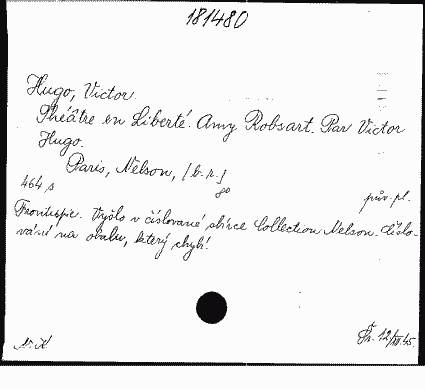 181480
Hugo, Victor
Théâtre en Liberté. Amy Robsart. Par Victor
Hugo.
Paris, Nelson, [b. r.]
464 s 8° pův. pl.
Frontispic. Vyšlo v číslované sbírce Collection Nelson. Číslo-
vání na obalu, který chybí!
N. K. Čr. 12/XII.45.